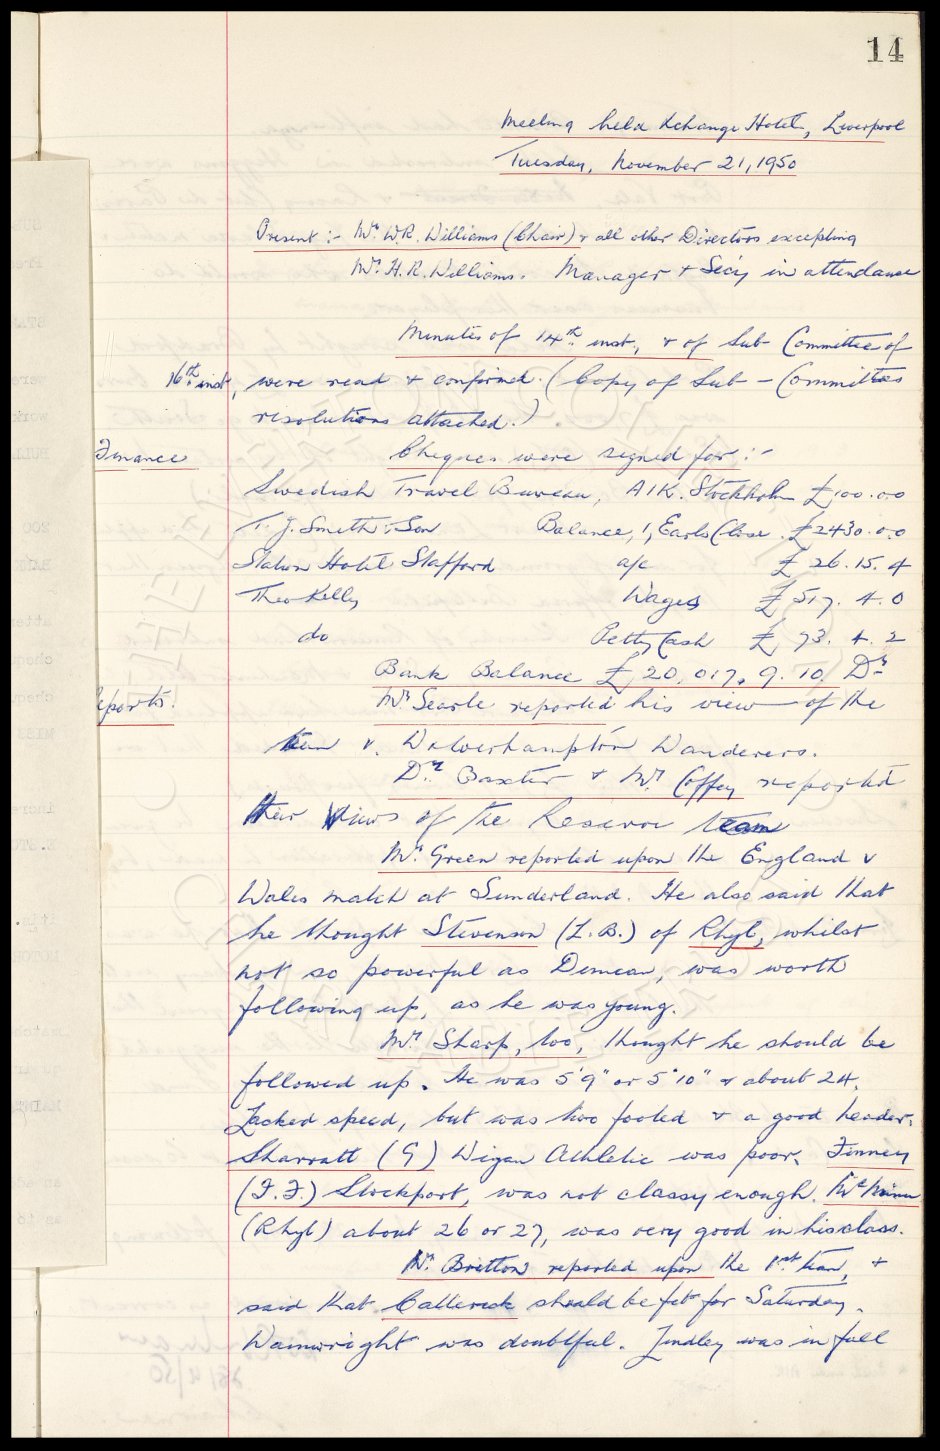 14
Meeting held Xchange Hotel, Liverpool
Tuesday, November 21, 1950
Present :- Mr. W.R. Williams (Chair) & all other Directors excepting
Mr. H.R. Williams. Manager & Sec'y in attendance
Minutes of 14th inst, & of Sub Committee of
16th inst, were read & confirmed. (Copy of Sub-Committees
resolutions attached.)
Finance
Cheques were signed for :-
Swedish Travel Bureau, AIK. Stockholm £100.0.0
T. J. Smith & Son Balance, 1, Earls Close. £2430.0.0
Station Hotel Stafford a/c £ 26.15.4
Theo Kelly Wages £ 517. 4. 0
do Petty Cash £ 73. 4. 2
Bank Balance £ 20,017. 9. 10 Dr
eports.
Mr. Searle reported his view of the
team v. Wolverhampton Wanderers.
Dr. Baxter & Mr. Coffey reported
their views of the Reserve team
Mr. Green reported upon the England v
Wales match at Sunderland. He also said that
he thought Stevenson (L.B.) of Rhyl, whilst
not so powerful as Dunean, was worth
following up, as he was young.
Mr. Sharp, too, thought he should be
followed up. He was 5'9" or 5'10" & about 24.
Lacked speed, but was two footed & a good header.
Sharratt (G) Wigan Athletic was poor. Finney
(I.F.) Stockport, was not classy enough.
(Rhyl) about 26 or 27, was very good in his class.
Mr. Britton reported upon the 1st team, &
said that Catterick should be fit for Saturday.
Wainwright was doubtful. Lindley was in full